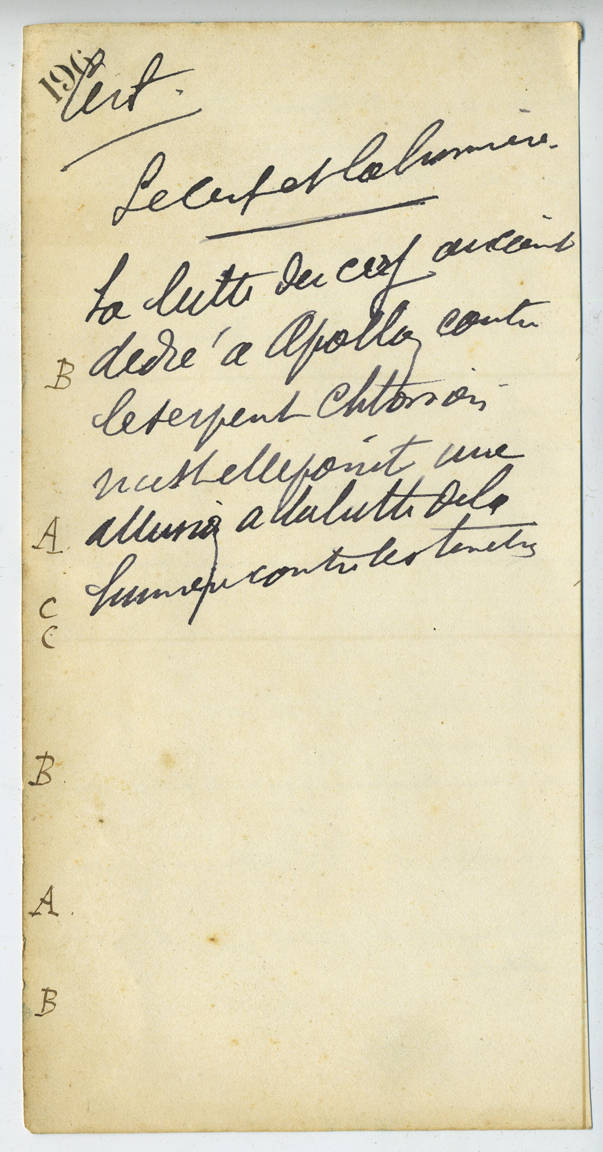 196
Cerf.
Le cerf et la lumière.
La lutte du cerf ancient
dédié a Apollon contre
B
le serpent Chtonien
n'est elle point une
allusion a la lutte de la
A
lumière contre les tenebres
C
C
B
A
B